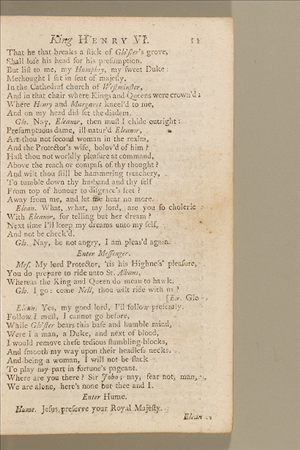 King HENRY VI.
That he that breaks a stick of Glo'ster's grove,
Shall lose his head for his presumption.
But list to me, my Humphry, my sweet Duke:
Methought I sat in seat of majesty,
In the Cathedral church of Westminster,
And in that chair where Kings and Queens were crown'd;
Where Henry and Margaret kneel'd to me,
And on my head did set the diadem.
Glo. Nay, Eleanor, then must I chide outright:
Presumptuous dame, ill-natur'd Eleanor,
Art thou not second woman in the realm,
And the Protector's wife, belov'd of him?
Hast thou not worldly pleasure at command,
Above the reach or compass of thy thought?
And wilt thou still be hammering treachery,
To tumble down thy husband and thy self
From top of honour to disgrace's feet?
Away from me, and let me hear no more.
Elean. What, what, my lord, are you so choleric
With Eleanor, for telling but her dream?
Next time I'll keep my dreams unto my self,
And not be check'd.
Glo. Nay, be not angry, I am pleas'd again.
Enter Messenger.
Mes. My lord Protector, 'tis his Highness' pleasure,
You do prepare to ride unto St. Albans,
Whereas the King and Queen do mean to hawk.
Glo. I go: come Nell, thou wilt ride with us?
[Ex. Glo
Elean. Yes, my good lord, I'll follow presently.
Follow I must, I cannot go before,
While Glo'ster bears this base and humble mind,
Were I a man, a Duke, and next of blood,
I would remove these tedious stumbling-blocks,
And smooth my way upon their headless necks.
And being a woman, I will not be slack
To play my part in fortune's pageant.
Where are you there? Sir John; nay, fear not, man,
We are alone, here's none but thee and I.
Enter Hume.
Hume. Jesus preserve your Royal Majesty.
Elean